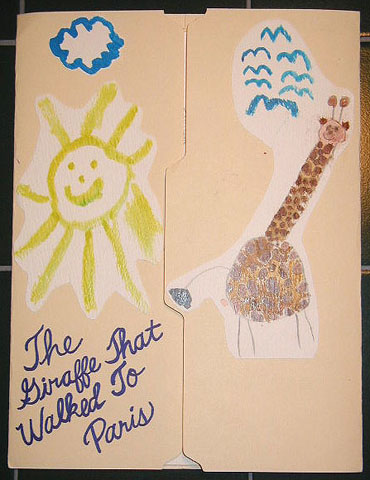 The
Giraffe That
Walked To
Paris